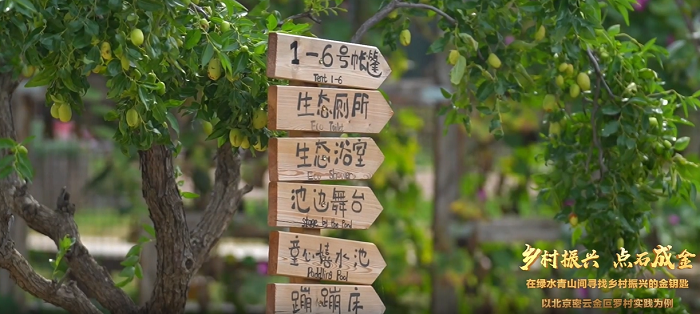 1-6号帐篷
Tent 1-6
生态厕所
Eco Toilet
生态浴室
Eco Shower
池边舞台
Stage by the Pond
童心嬉水池
Paddling Pool
蹦蹦床
乡村振兴 点石成金
在绿水青山间寻找乡村振兴的金钥匙
以北京密云金叵罗村实践为例